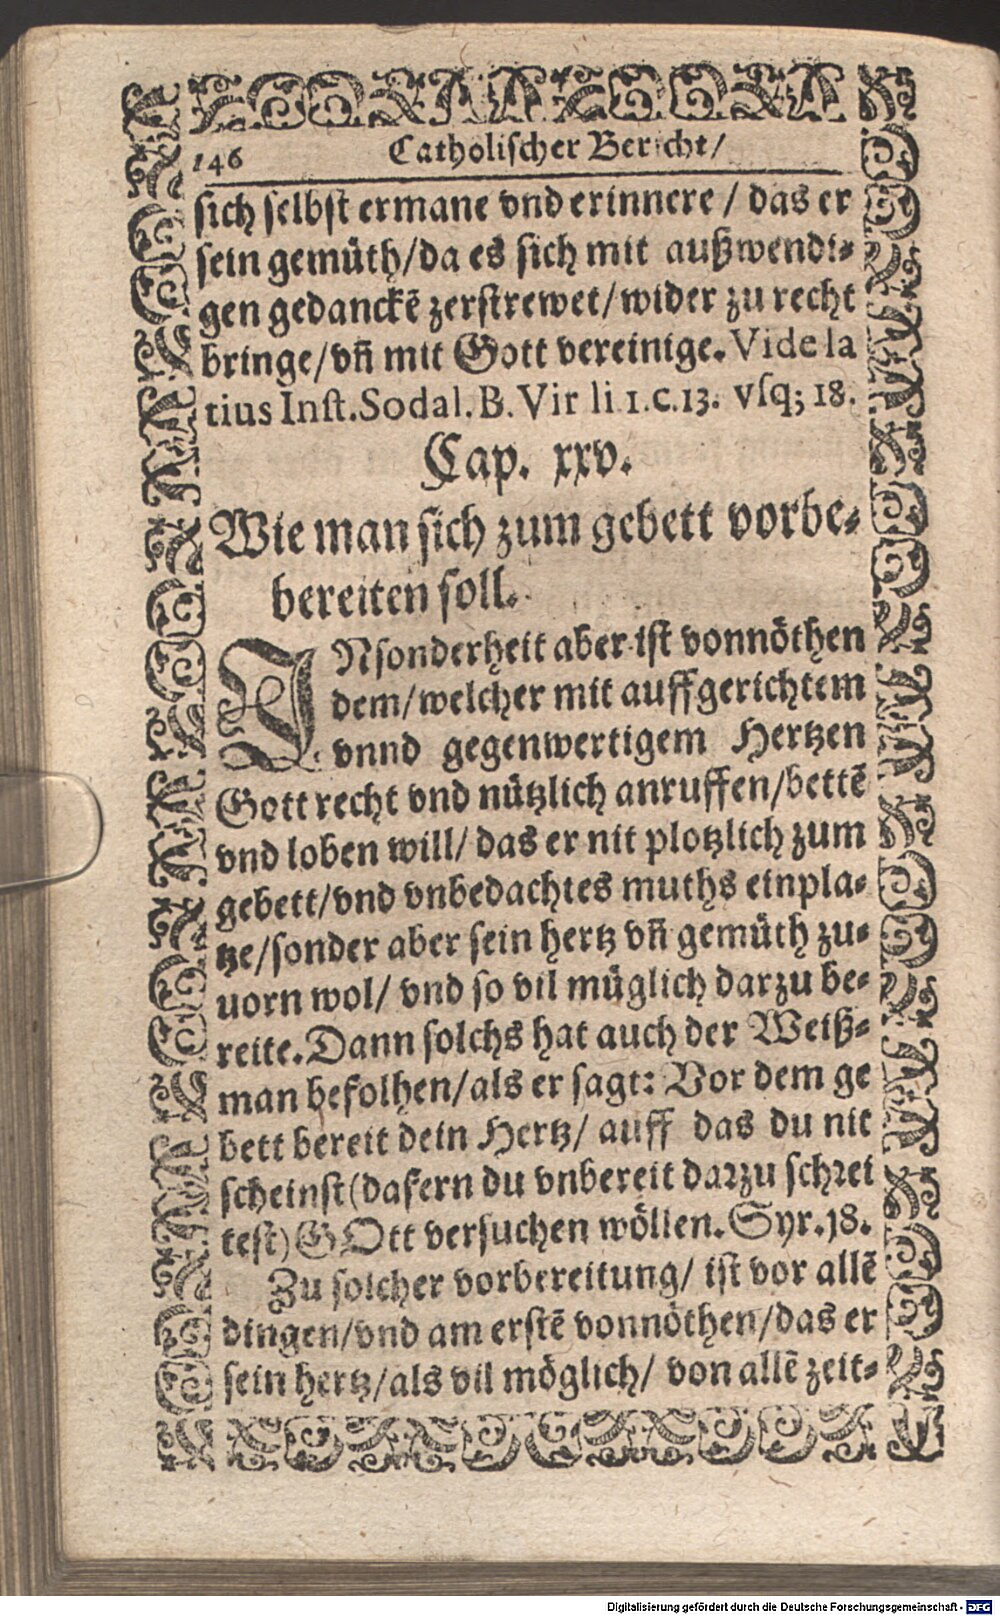 146 Catholischer Bericht/
sich selbst ermane vnd erinnere / das er
sein gemüth/da es sich mit außwendi⸗
gen gedanckē zerstrewet/wider zu recht
bringe/vñ mit Gott vereinige. Vide la
tius Inst. Sodal. B. Vir li 1. c. 13. vsq; 18.
Cap. xxv.
Wie man sich zum gebett vorbe⸗
bereiten soll.
INsonderheit aber ist vonnöthen
dem/welcher mit auffgerichtem
vnnd gegenwertigem Hertzen
Gott recht vnd nützlich anruffen/bettē
vnd loben will/ das er nit plotzlich zum
gebett/vnd vnbedachtes muths einpla⸗
tze/sonder aber sein hertz vñ gemüth zu⸗
uorn wol/ vnd so vil müglich darzu be⸗
reite. Dann solchs hat auch der Weiß⸗
man befolhen/als er sagt: Vor dem ge
bett bereit dein Hertz/ auff das du nit
scheinst(dafern du vnbereit darzu schrei
test) GOtt versuchen wöllen. Syr. 18.
Zu solcher vorbereitung/ ist vor allē
dingen/vnd am erstē vonnöthen/das er
sein hertz/als vil möglich/ von allē zeit⸗
Digitalisierung gefördert durch die Deutsche Forschungsgemeinschaft - DFG